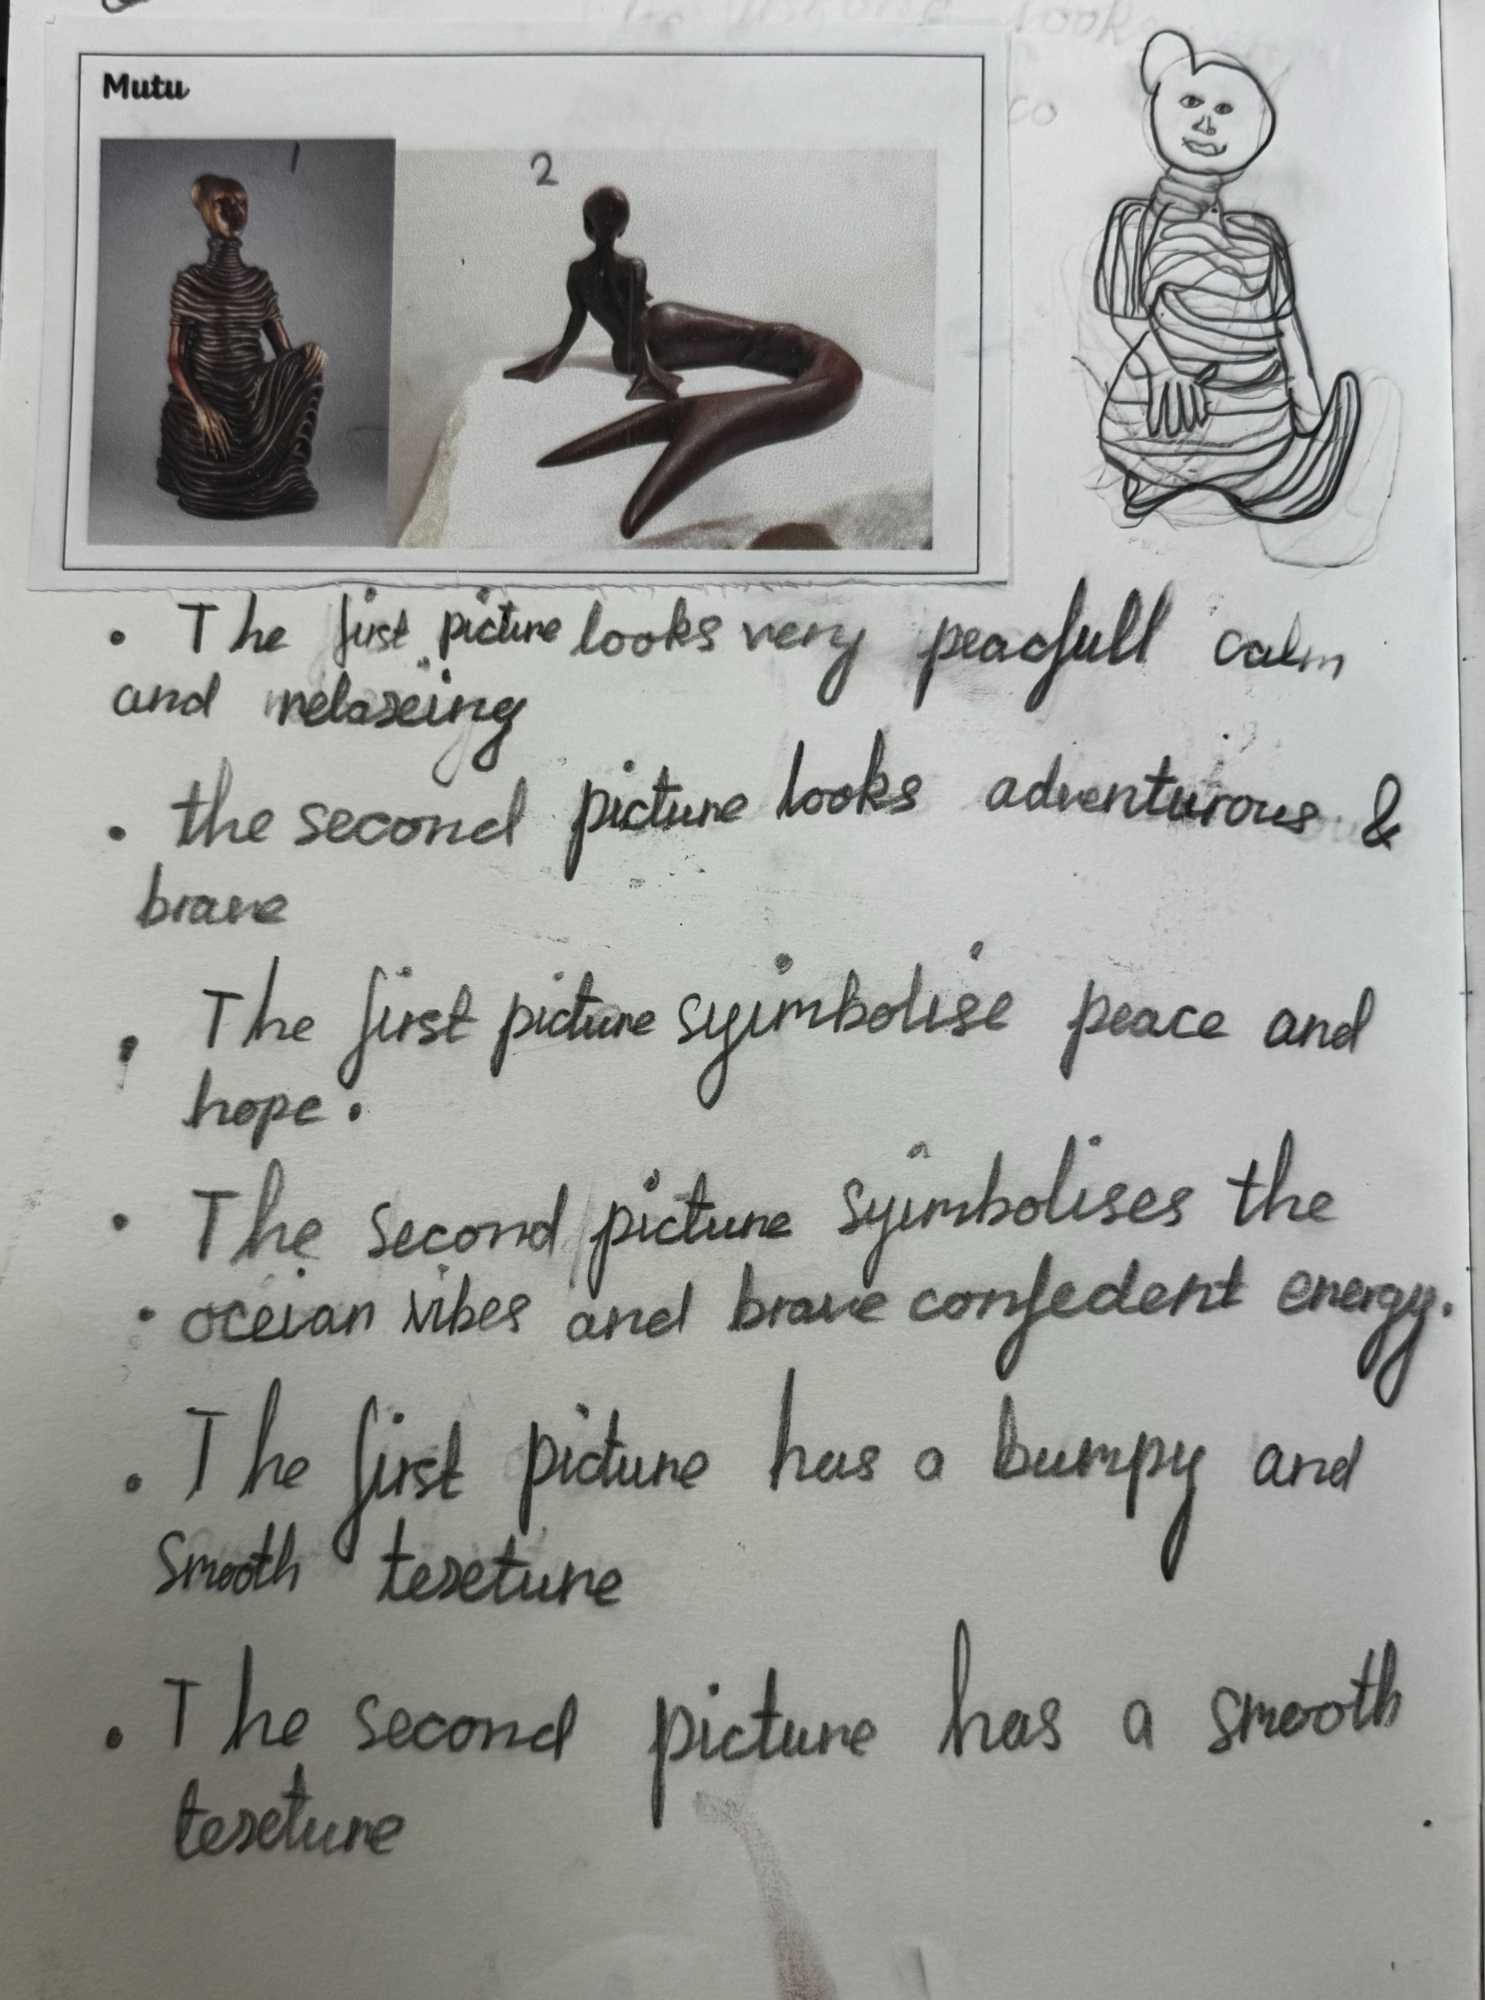 Mutu
1
2
• The first picture looks very peacfull calm
and relaxeing
• the second picture looks adventurous &
brave
• The first picture syimbolise peace and
hope.
• The second picture syimbolises the
• oceian vibes and brave confedent energy.
• The first picture has a bumpy and
smooth texeture
• The second picture has a smooth
texeture